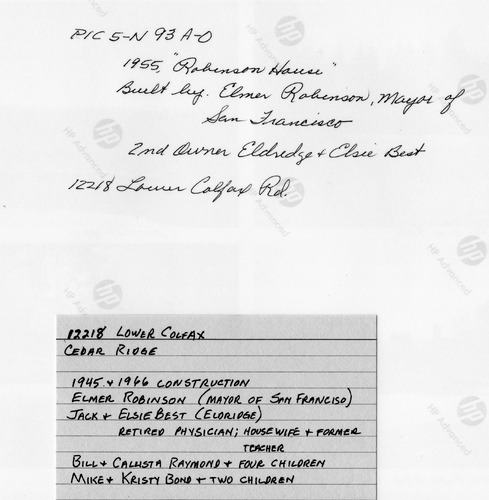 PIC 5-N 93 A-O
1955, "Robinson House"
Built by. Elmer Robinson, Mayor of
San Francisco
2nd Owner Eldredge + Elsie Best
12218 Lower Colfax Rd.
12218 LOWER COLFAX
CEDAR RIDGE
1945 + 1966 CONSTRUCTION
ELMER ROBINSON (MAYOR OF SAN FRANCISO)
JACK + ELSIE BEST (ELDRIDGE)
RETIRED PHYSICIAN; HOUSEWIFE + FORMER
TEACHER
BILL + CALLISTA RAYMOND + FOUR CHILDREN
MIKE + KRISTY BOND + TWO CHILDREN
HP Advanced
HP Advanced
HP Advanced
HP Advanced
HP Advanced
HP Advanced